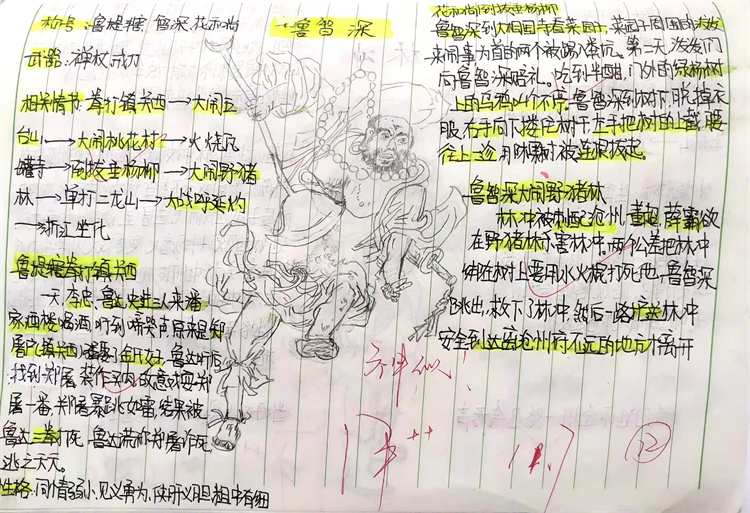 鲁智深
称号：鲁提辖 鲁智深 花和尚
武器：禅杖 戒刀
相关情节：拳打镇关西→大闹五
台山→大闹桃花村→火烧瓦
罐寺→倒拔垂杨柳→大闹野猪
林→单打二龙山→大战呼延灼
→浙江坐化
鲁提辖拳打镇关西
一天，李忠、鲁达、史进三人来潘
家酒楼喝酒，听到啼哭声，原来是郑
屠
找到郑屠，装作平静，故意戏耍郑
屠一番，郑屠暴跳如雷，结果被
鲁达三拳打死，鲁达谎称郑屠诈死
逃之夭夭。
性格：同情弱小、见义勇为、侠肝义胆、粗中有细
花和尚倒拔垂杨柳
鲁智深到大相国寺看菜园子，菜园子周围的泼皮
来闹事，为首的两个被踢入粪坑。第二天，泼皮们
向鲁智深赔礼。吃到半酣，门外的绿杨树
上的乌鸦叫个不停，鲁智深到树下，脱掉衣
服，右手向下搂住树干，左手把树的上截，腰
往上一
鲁智深大闹野猪林
林冲被刺配沧州，董超、薛霸欲
在野猪林杀害林冲，两个公差把林冲
绑在树上要用水火棍打死他，鲁智深
跳出，救下了林冲，然后一路护送林冲
安全到达离沧州府不远的地方才离开